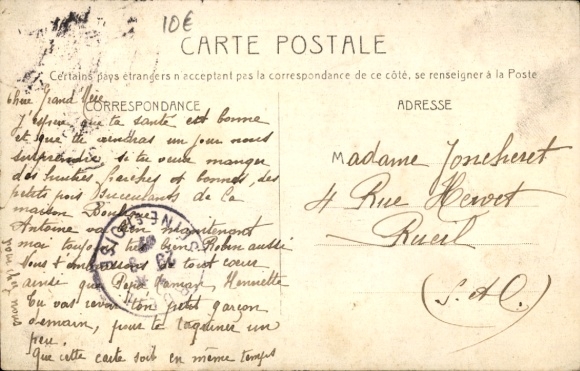 10€
CARTE POSTALE
Certains pays étrangers n'acceptent pas la correspondance de ce côté, se renseigner à la Poste
CORRESPONDANCE
Chère Grand Mère
J'espère que ta santé est bonne
et que tu viendras un jour nous
surprendre si tu veux manger
des fraiches et bonnes, des
petits pois succulents de la
maison
Antoine va bien maintenant
moi toujours très bien Robin aussi
Nous t'embrassons de tout cœur
ainsi que Papa Maman, Henriette
Tu vas revoir ton petit garçon
demain, pour te taquiner un
peu.
Que cette carte soit en même temps
pour
nous
ADRESSE
Madame Joncheret
4 Rue Hervet
Rueil
(S. & O.)
SEINE